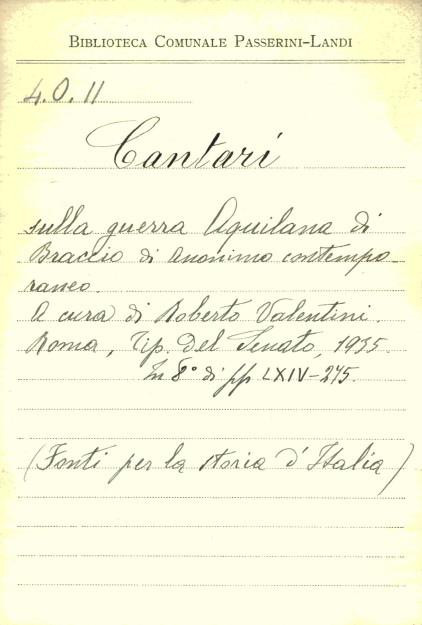 BIBLIOTECA COMUNALE PASSERINI-LANDI
4.O.11
Cantari
sulla guerra Aquilana di
Braccio di Anonimo contempo-
raneo.
A cura di Roberto Valentini.
Roma, Tip. del Senato, 1935.
In 8° di pp LXIV-275.
(Fonti per la storia d'Italia)